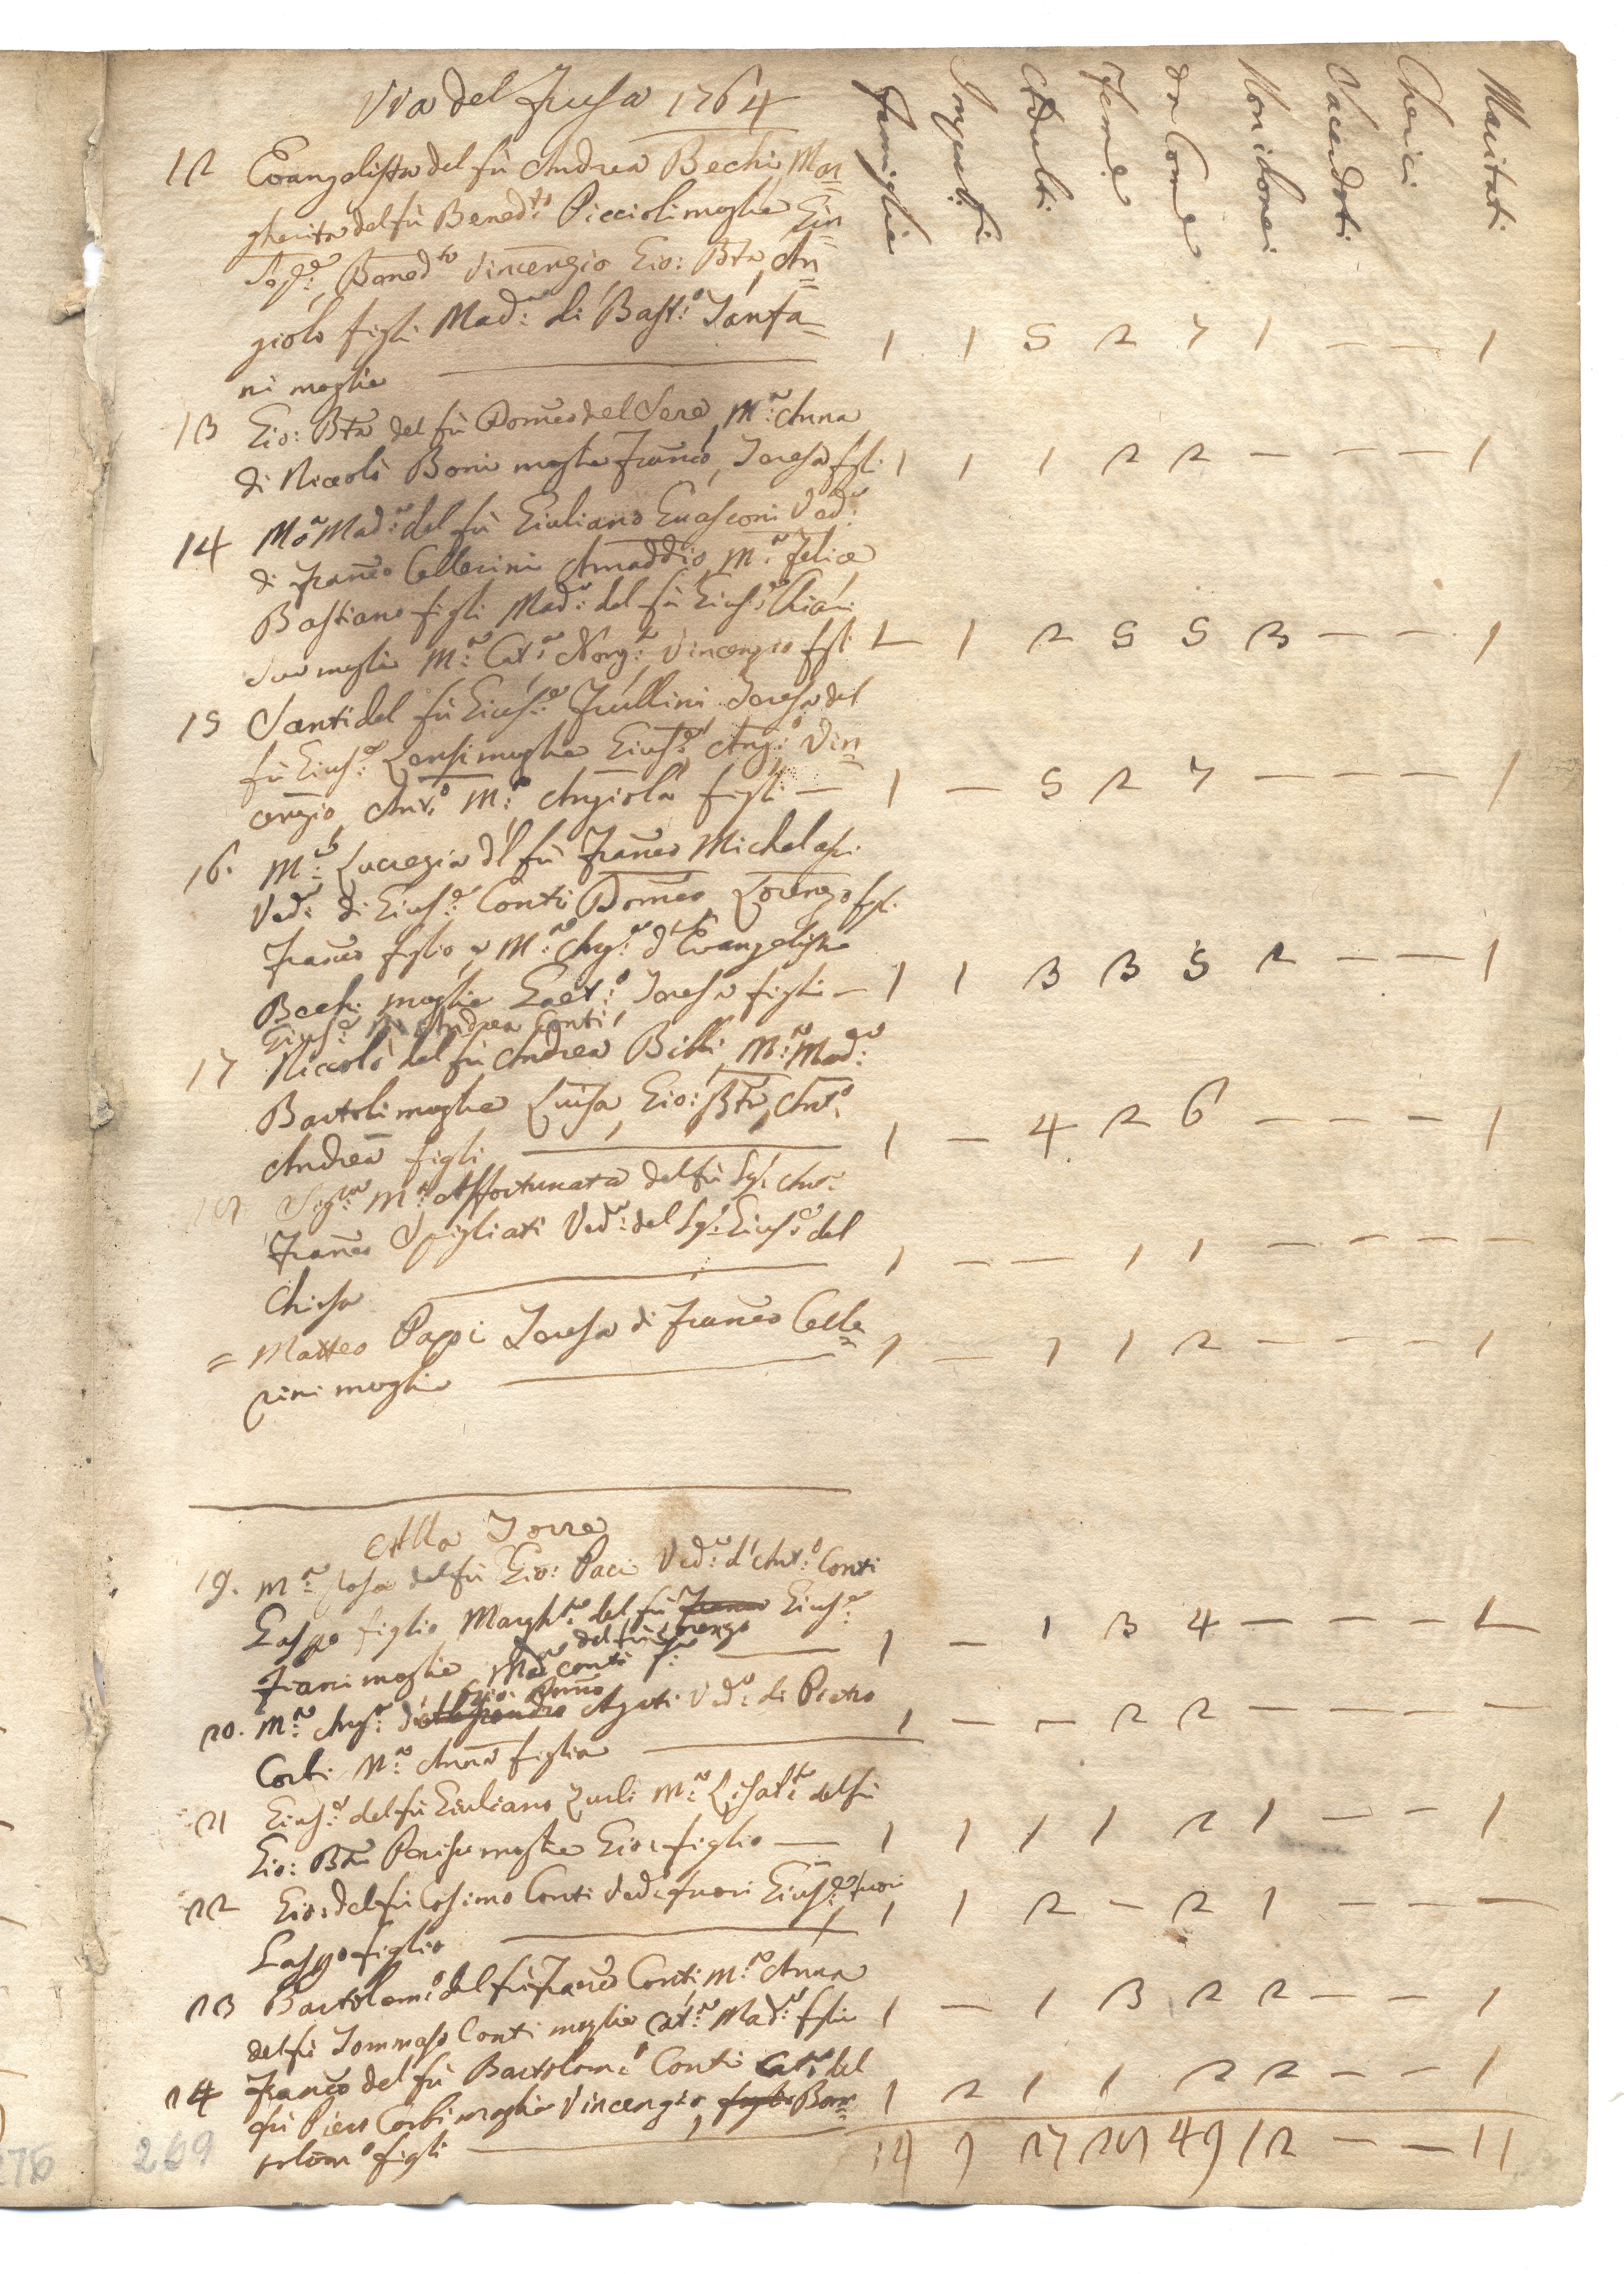 Via del Fusa 1764
Famiglie
Impuberi
Adulti
Femine
da Come
Non idonei
Sacerdoti
Cherici
Maritati
12 Evangelista del fù Andrea Bechi, Mar=
gherita del fù Bened:to Piccioli moglie Giu
Sep:e, Bened:to Vincenzio Gio: Bta, An=
giolo figli Mad:a di Bast:o Tanfa=
ni moglie 1 1 5 2 7 1 — — 1
13 Gio: Bta del fù Domeco del Sere, M:a Anna
di Niccolò Boni moglie Franco, Teresa figli 1 1 1 2 2 — — — 1
14 Ma Mad:a del fù Giuliano Guasconi Ved:a
di Franco Cellerini Amaddio, M:a Felice
Bastiano figli Mad:a del fù Gius:e Chiari
sua moglie M:a Cat:a Ang:a Vincenzio figli 1 1 2 5 5 3 — — 1
15 Santi del fù Gius:e Frullini Teresa del
fù Gius:e Lensi moglie Gius:e, Ang:o, Vin=
cenzio Ant:o M:a Angiola figli — 1 — 5 2 7 — — — 1
16. M:a Lucrezia d'l fù Franco Michelassi
Ved:a di Gius:e Conti Domeco Lorenzo figli
Franco figlio, e M:a Ang:a d'Evangelista
Bechi moglie Gaet:o Teresa figli — 1 1 3 3 5 2 — — 1
Gius:e Andrea Conti
17 Niccolò del fù Andrea Billi M:a Mad:a
Bartoli moglie Luisa, Gio: Bta, Anto:
Andrea figli 1 — 4 2 6 — — — 1
18 Sig:ra M:a Affortunata del fù Sg: Ant:
Franco Spigliati Ved:a del Sg: Gius:e del
Chiesa 1 — — 1 1 — — — —
= Matteo Pappi Teresa di Franco Celle=
rini moglie 1 — 1 1 2 — — — 1
Alla Torre
19. M:a Rosa del fù Gio: Paci Ved:a d'Ant:o Conti
Gaspo figlio Margh:ta del fù Franco Gius:e
del fù Lorenzo
Fiani moglie Mad:a Conti 1 — 1 3 4 — — — 1
Gio: Domco
20. M:a Ang:a d'Alessandro Agati Ved:a di Pietro
Corbi M:a Anna figlia 1 — — 2 2 — — — —
21 Gius:e del fù Giuliano Zuli M:a Lisab:ta del fù
Gio: Bta Parisi moglie Gio: figlio — 1 1 1 1 2 1 — — 1
22 Gio: del fù Cosimo Conti Ved: fuori Gius:e fuori
Gaspo figlio 1 1 2 — 2 1 — — —
23 Bartolom:o del fù Franco Conti, M:a Anna
del fù Tommaso Conti moglie Cat:a Mad:a figlie 1 — 1 3 2 2 — — 1
24 Franco del fù Bartolom:o Conti Cat:a del
fù Piero Corbi moglie Vincenzio, figlio Bar=
tolom:o figli 1 2 1 1 2 2 — — 1
14 9 27 28 49 12 — — 11
269